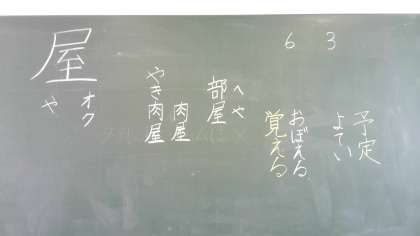 6 3
予定
よてい
おぼえる
覚える
へや
部屋
肉屋
やき肉屋
屋
オク
や